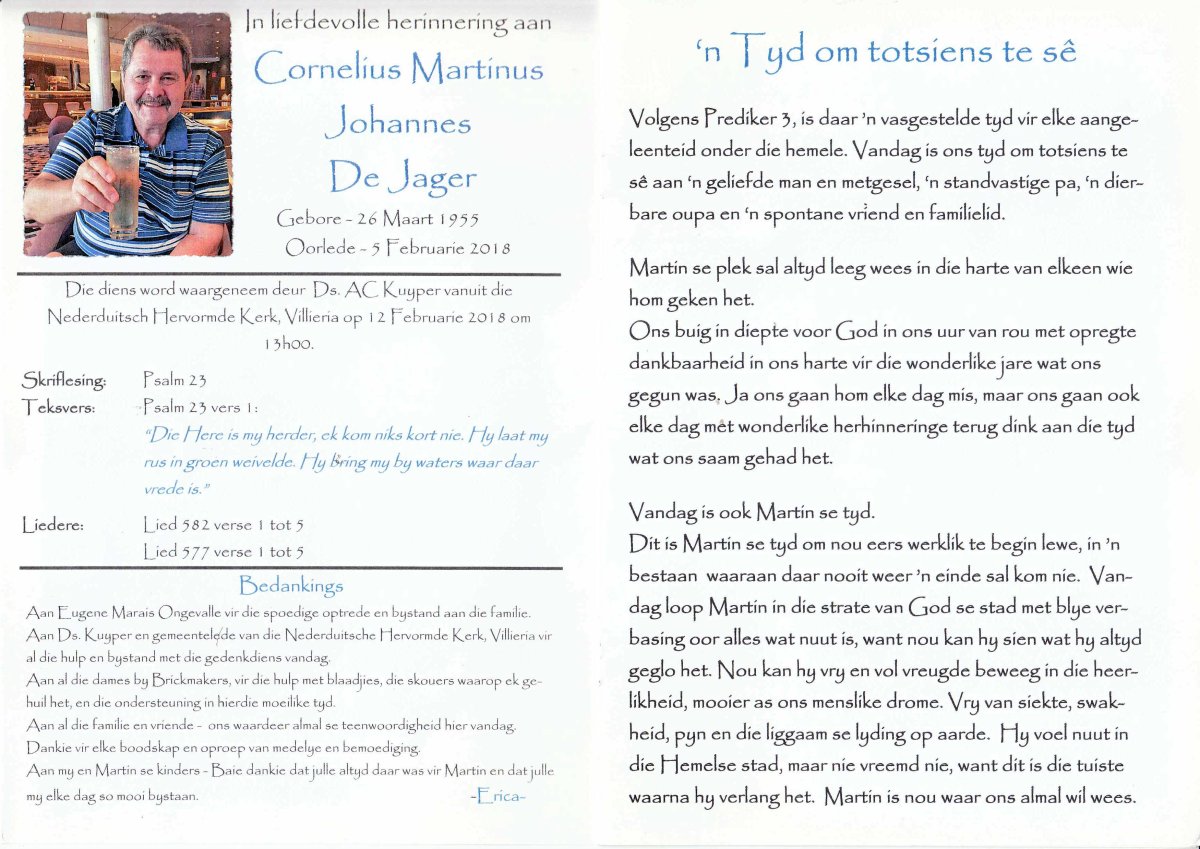 In liefdevolle herinnering aan
Cornelius Martinus
Johannes
De Jager
Gebore - 26 Maart 1955
Oorlede - 5 Februarie 2018
Die diens word waargeneem deur Ds. AC Kuyper vanuit die
Nederduitsch Hervormde Kerk, Villieria op 12 Februarie 2018 om
13h00.
Skriflesing: Psalm 23
Teksvers: Psalm 23 vers 1:
"Die Here is my herder, ek kom niks kort nie. Hy laat my
rus in groen weivelde. Hy bring my by waters waar daar
vrede is."
Liedere: Lied 582 verse 1 tot 5
Lied 577 verse 1 tot 5
Bedankings
Aan Eugene Marais Ongevalle vir die spoedige optrede en bystand aan die familie.
Aan Ds. Kuyper en gemeentelede van die Nederduitsche Hervormde Kerk, Villieria vir
al die hulp en bystand met die gedenkdiens vandag.
Aan al die dames by Brickmakers, vir die hulp met blaadjies, die skouers waarop ek ge-
huil het, en die ondersteuning in hierdie moeilike tyd.
Aan al die familie en vriende - ons waardeer almal se teenwoordigheid hier vandag.
Dankie vir elke boodskap en oproep van medelye en bemoediging.
Aan my en Martin se kinders - Baie dankie dat julle altyd daar was vir Martin en dat julle
my elke dag so mooi bystaan. -Erica-
'n Tyd om totsiens te sê
Volgens Prediker 3, is daar 'n vasgestelde tyd vir elke aange-
leenteid onder die hemele. Vandag is ons tyd om totsiens te
sê aan 'n geliefde man en metgesel, 'n standvastige pa, 'n dier-
bare oupa en 'n spontane vriend en familielid.
Martin se plek sal altyd leeg wees in die harte van elkeen wie
hom geken het.
Ons buig in diepte voor God in ons uur van rou met opregte
dankbaarheid in ons harte vir die wonderlike jare wat ons
gegun was. Ja ons gaan hom elke dag mis, maar ons gaan ook
elke dag met wonderlike herhinneringe terug dink aan die tyd
wat ons saam gehad het.
Vandag is ook Martin se tyd.
Dit is Martin se tyd om nou eers werklik te begin lewe, in 'n
bestaan waaraan daar nooit weer 'n einde sal kom nie. Van-
dag loop Martin in die strate van God se stad met blye ver-
basing oor alles wat nuut is, want nou kan hy sien wat hy altyd
geglo het. Nou kan hy vry en vol vreugde beweeg in die heer-
likheid, mooier as ons menslike drome. Vry van siekte, swak-
heid, pyn en die liggaam se lyding op aarde. Hy voel nuut in
die Hemelse stad, maar nie vreemd nie, want dit is die tuiste
waarna hy verlang het. Martin is nou waar ons almal wil wees.